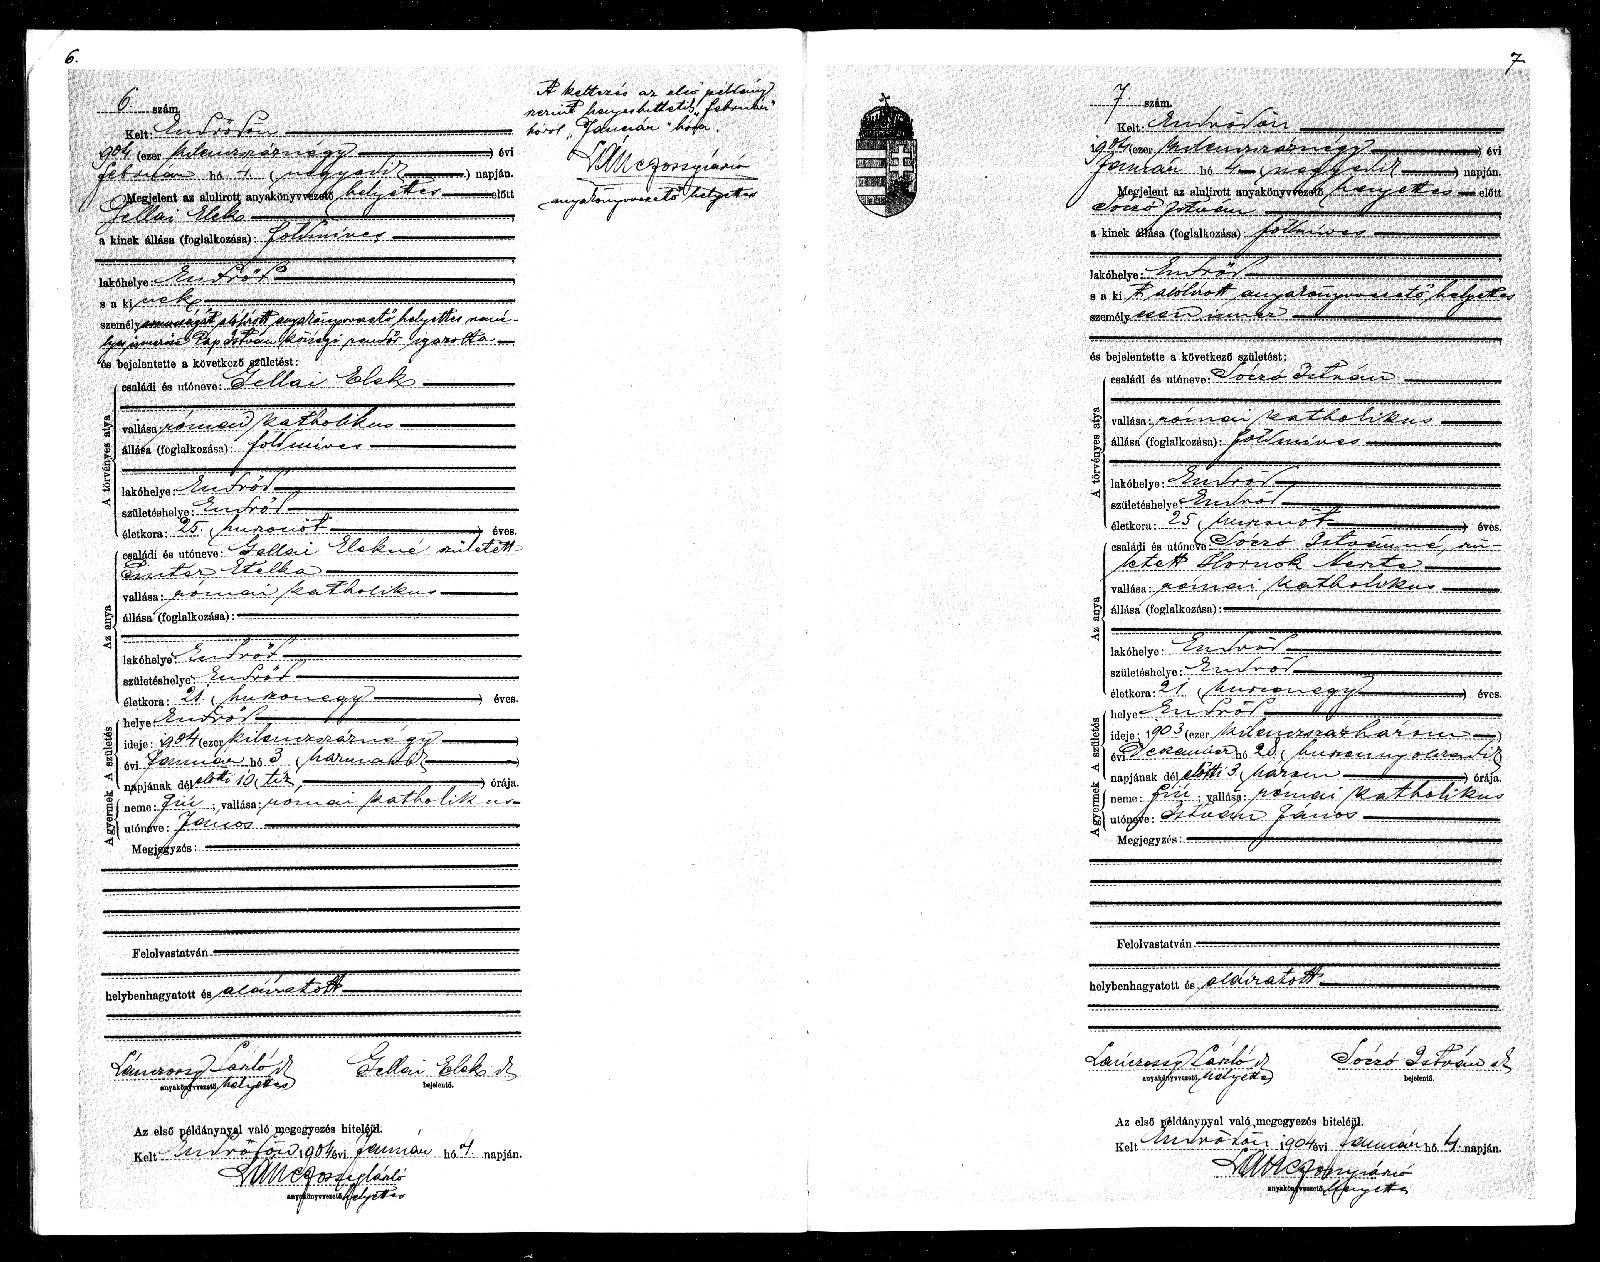 6.
6. szám.
Kelt: Endrődön
904 (ezer kilenczszáznégy) évi
februar hó 4 (negyedik) napján.
Megjelent az alulirott anyakönyvvezető helyettes előtt
Gellai Elek
a kinek állása (foglalkozása): földmíves
lakóhelye: Endrőd
s a ki nek
személy azonosságát alólirott anyakönyvvezető helyettes
ismerise Pap István községi rendőr igazolta
és bejelentette a következő születést:
A törvényes atya
családi és utóneve: Gellai Elek
vallása római katholikus
állása (foglalkozása): földmíves
lakóhelye: Endrőd
születéshelye: Endrőd
életkora: 25. (huszonöt) éves.
Az anya
családi és utóneve: Gellai Elekné született
Timar Etelka
vallása: római katholikus
állása (foglalkozása):
lakóhelye: Endrőd
születéshelye: Endrőd
életkora: 21 (huszonegy) éves.
A születés
helye Endrőd
ideje: 904 (ezer kilenczszáznégy)
évi Január hó 3 (harmadik)
napjának dél előtti 10 (tíz) órája.
A gyermek
neme: fiú; vallása: római katholikus
utóneve: János
Megjegyzés:
Felolvastatván
helybenhagyatott és aláiratott
Lánczossy László sk Gellai Elek sk
anyakönyvvezető. helyettes bejelentő.
Az első példánynyal való megegyezés hiteléül.
Kelt Endrődön 1904 évi Január hó 4 napján.
Lánczossy László
anyakönyvvezető. helyettes
A keltezés az első példány
szerint helyesbittetik „február"
hóról „Január" hóra.
Lánczossy László
anyakönyvvezető helyettes
7
7 szám.
Kelt: Endrődön
1904 (ezer kilenczszáznégy) évi
Január hó 4 (negyedik) napján.
Megjelent az alulirott anyakönyvvezető helyettes előtt
Sóczó István
a kinek állása (foglalkozása): földmíves
lakóhelye: Endrőd
s a ki t alólirott anyakönyvvezető helyettes
személy esen ismer
és bejelentette a következő születést:
A törvényes atya
családi és utóneve: Sóczó István
vallása: római katholikus
állása (foglalkozása): földmíves
lakóhelye: Endrőd
születéshelye: Endrőd
életkora: 25 (huszonöt) éves.
Az anya
családi és utóneve: Sóczó Istvánné, szü-
letett Hornok
vallása: római katholikus
állása (foglalkozása):
lakóhelye: Endrőd
születéshelye: Endrőd
életkora: 21 (huszonegy) éves.
A születés
helye Endrőd
ideje: 1903 (ezer kilenczszázhárom)
évi Deczember hó 28 (huszonnyolczadik)
napjának dél előtti 3 (három) órája.
A gyermek
neme: fiú; vallása: római katholikus
utóneve: István János
Megjegyzés:
Felolvastatván
helybenhagyatott és aláiratott
Lánczossy László sk Sóczó István sk
anyakönyvvezető. helyettes bejelentő.
Az első példánynyal való megegyezés hiteléül.
Kelt Endrődön 1904 évi Január hó 4 napján.
Lánczossy László
anyakönyvvezető. helyettes